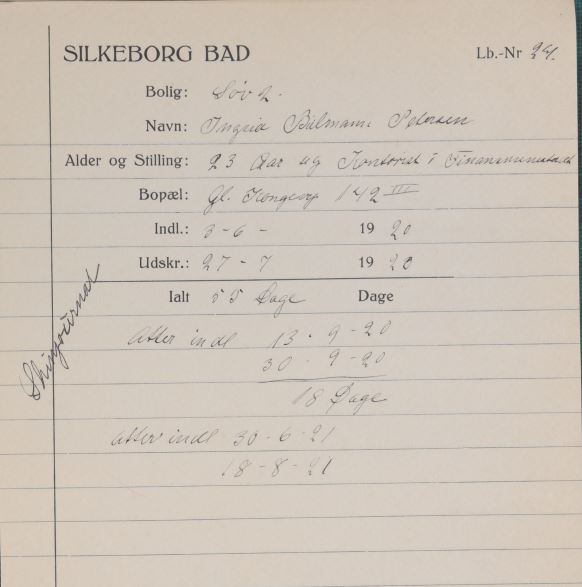 SILKEBORG BAD
Lb.-Nr 24.
Bolig: Løv 2.
Navn: Ingrid Bülmann Petersen
Alder og Stilling: 23 Aar ug Kontorist i Finansministeriet
Bopæl: Gl. Kongevej 142 III
Indl.: 3-6- 1920
Udskr.: 27-7 1920
Ialt 55 Dage Dage
Atter indl 13-9-20
30-9-20
18 Dage
Atter indl 30-6-21
18-8-21